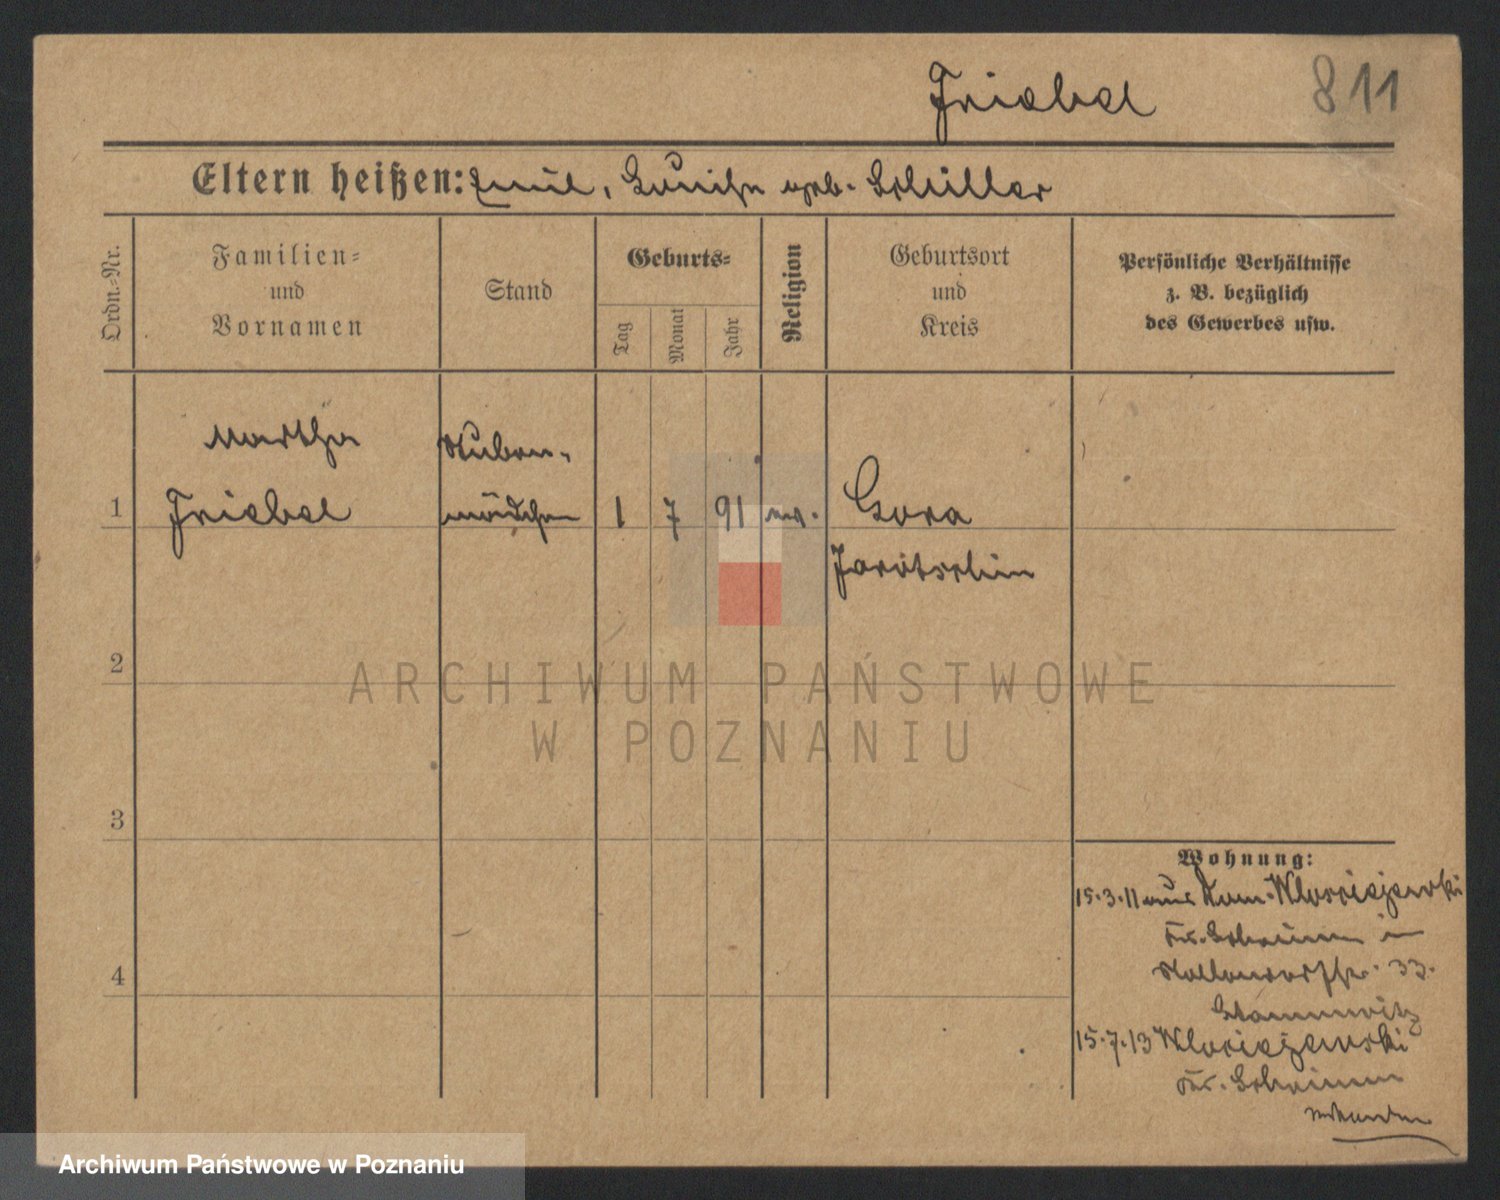 Friebel
811
Eltern heißen: Emil, Luise geb. Schiller
Ordn.-Nr.
Familien-
und
Vornamen
Stand
Geburts-
Tag
Monat
Jahr
Religion
Geburtsort
und
Kreis
Persönliche Verhältnisse
z. B. bezüglich
des Gewerbes usw.
Martha
Stuben-
1
Friebel
mädchen
1
7
91
ev.
Gora
Jarotschin
2
3
4
Wohnung:
15.3.11 aus
Kr.
in
33.
15.7.13
Kr.
ARCHIWUM PAŃSTWOWE
W POZNANIU
Archiwum Państwowe w Poznaniu